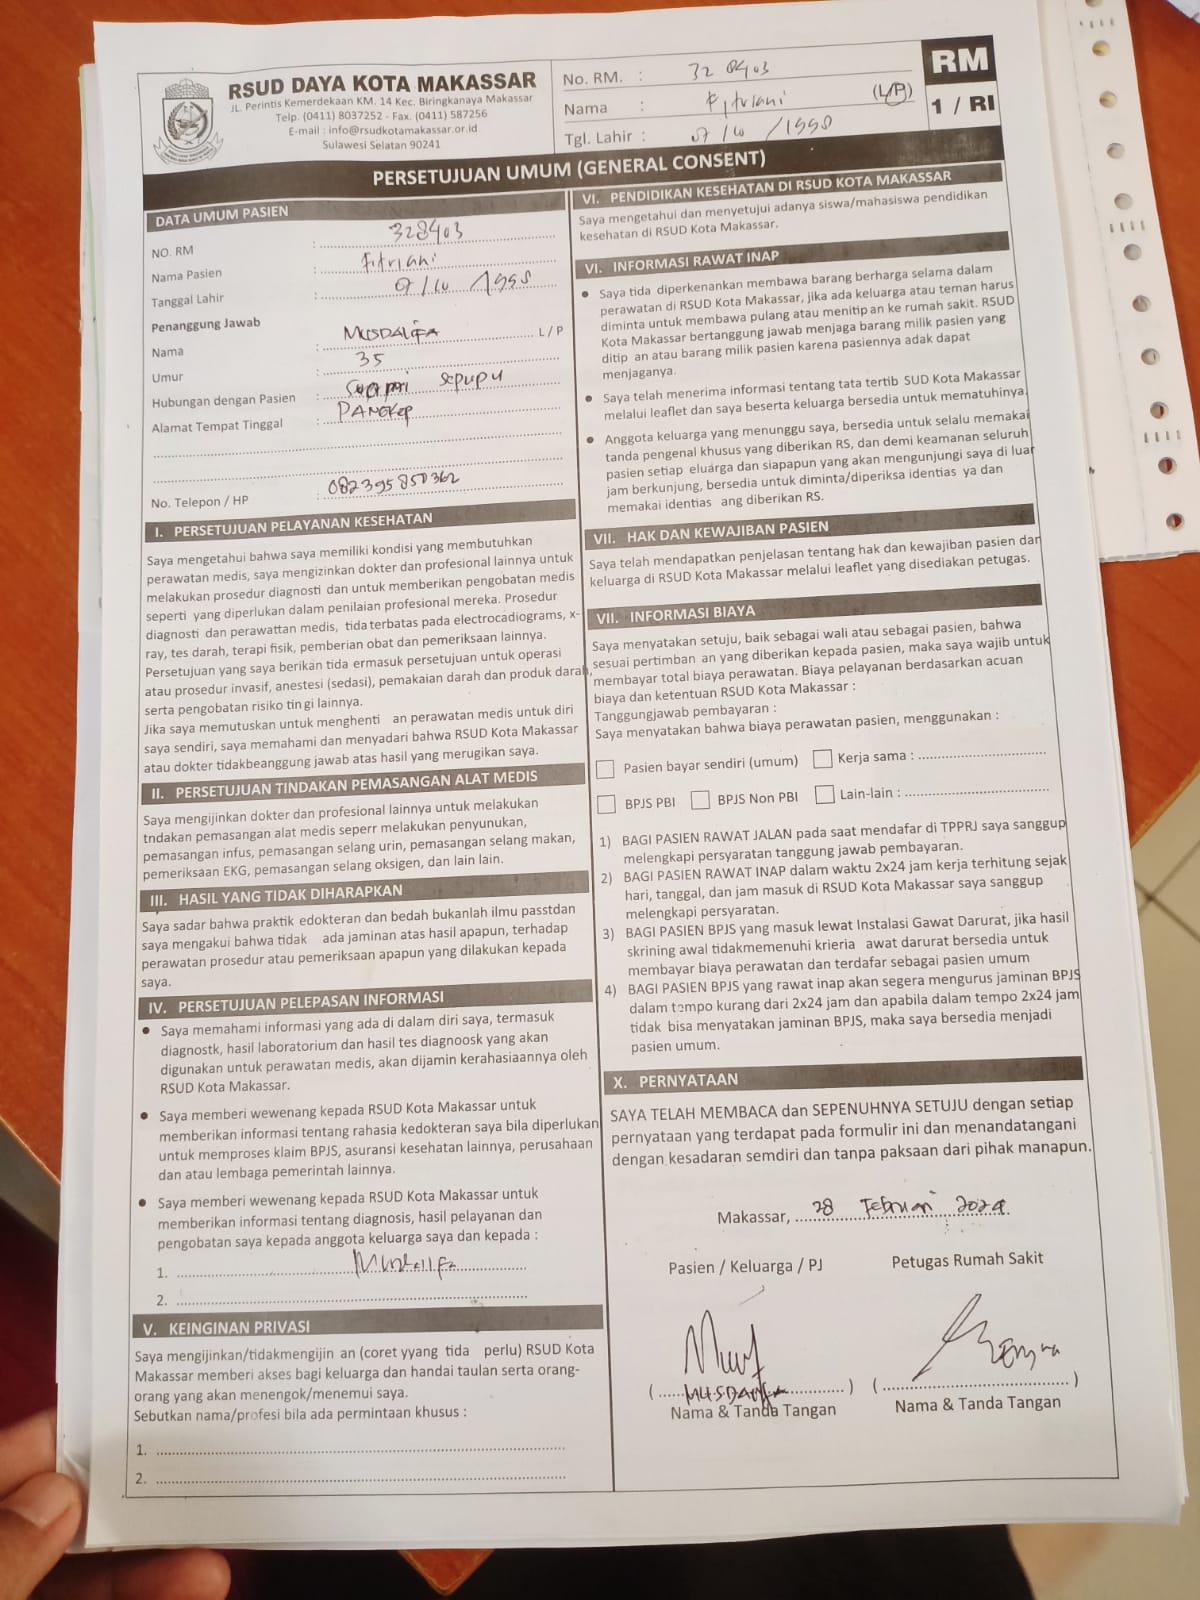 RSUD DAYA KOTA MAKASSAR
JL. Perintis Kemerdekaan KM. 14 Kec. Biringkanaya Makassar
Telp. (0411) 8037252 - Fax. (0411) 587256
E-mail : info@rsudkotamakassar.or.id
Sulawesi Selatan 90241
No. RM. : 328403
Nama : Fitriani (L/P)
Tgl. Lahir : 07/10/1998
RM
1 / RI
PERSETUJUAN UMUM (GENERAL CONSENT)
DATA UMUM PASIEN
NO. RM : 328403
Nama Pasien : Fitriani
Tanggal Lahir : 07/10/1998
Penanggung Jawab
Nama : MUSDALIFA L / P
Umur : 35
Hubungan dengan Pasien : sepupu
Alamat Tempat Tinggal : PANGKEP
No. Telepon / HP : 082395850362
I. PERSETUJUAN PELAYANAN KESEHATAN
Saya mengetahui bahwa saya memiliki kondisi yang membutuhkan
perawatan medis, saya mengizinkan dokter dan profesional lainnya untuk
melakukan prosedur diagnosti dan untuk memberikan pengobatan medis
seperti yang diperlukan dalam penilaian profesional mereka. Prosedur
diagnosti dan perawattan medis, tida terbatas pada electrocadiograms, x-
ray, tes darah, terapi fisik, pemberian obat dan pemeriksaan lainnya.
Persetujuan yang saya berikan tida ermasuk persetujuan untuk operasi
atau prosedur invasif, anestesi (sedasi), pemakaian darah dan produk darah,
serta pengobatan risiko tin gi lainnya.
Jika saya memutuskan untuk menghenti an perawatan medis untuk diri
saya sendiri, saya memahami dan menyadari bahwa RSUD Kota Makassar
atau dokter tidakbeanggung jawab atas hasil yang merugikan saya.
II. PERSETUJUAN TINDAKAN PEMASANGAN ALAT MEDIS
Saya mengijinkan dokter dan profesional lainnya untuk melakukan
tndakan pemasangan alat medis seperr melakukan penyunukan,
pemasangan infus, pemasangan selang urin, pemasangan selang makan,
pemeriksaan EKG, pemasangan selang oksigen, dan lain lain.
III. HASIL YANG TIDAK DIHARAPKAN
Saya sadar bahwa praktik edokteran dan bedah bukanlah ilmu passtdan
saya mengakui bahwa tidak ada jaminan atas hasil apapun, terhadap
perawatan prosedur atau pemeriksaan apapun yang dilakukan kepada
saya.
IV. PERSETUJUAN PELEPASAN INFORMASI
● Saya memahami informasi yang ada di dalam diri saya, termasuk
diagnostk, hasil laboratorium dan hasil tes diagnoosk yang akan
digunakan untuk perawatan medis, akan dijamin kerahasiaannya oleh
RSUD Kota Makassar.
● Saya memberi wewenang kepada RSUD Kota Makassar untuk
memberikan informasi tentang rahasia kedokteran saya bila diperlukan
untuk memproses klaim BPJS, asuransi kesehatan lainnya, perusahaan
dan atau lembaga pemerintah lainnya.
● Saya memberi wewenang kepada RSUD Kota Makassar untuk
memberikan informasi tentang diagnosis, hasil pelayanan dan
pengobatan saya kepada anggota keluarga saya dan kepada :
1. Musdalifa
2.
V. KEINGINAN PRIVASI
Saya mengijinkan/tidakmengijin an (coret yyang tida perlu) RSUD Kota
Makassar memberi akses bagi keluarga dan handai taulan serta orang-
orang yang akan menengok/menemui saya.
Sebutkan nama/profesi bila ada permintaan khusus :
1.
2.
VI. PENDIDIKAN KESEHATAN DI RSUD KOTA MAKASSAR
Saya mengetahui dan menyetujui adanya siswa/mahasiswa pendidikan
kesehatan di RSUD Kota Makassar.
VI. INFORMASI RAWAT INAP
● Saya tida diperkenankan membawa barang berharga selama dalam
perawatan di RSUD Kota Makassar, jika ada keluarga atau teman harus
diminta untuk membawa pulang atau menitip an ke rumah sakit. RSUD
Kota Makassar bertanggung jawab menjaga barang milik pasien yang
ditip an atau barang milik pasien karena pasiennya adak dapat
menjaganya.
● Saya telah menerima informasi tentang tata tertib SUD Kota Makassar
melalui leaflet dan saya beserta keluarga bersedia untuk mematuhinya.
● Anggota keluarga yang menunggu saya, bersedia untuk selalu memakai
tanda pengenal khusus yang diberikan RS, dan demi keamanan seluruh
pasien setiap eluarga dan siapapun yang akan mengunjungi saya di luar
jam berkunjung, bersedia untuk diminta/diperiksa identias ya dan
memakai identias ang diberikan RS.
VII. HAK DAN KEWAJIBAN PASIEN
Saya telah mendapatkan penjelasan tentang hak dan kewajiban pasien dan
keluarga di RSUD Kota Makassar melalui leaflet yang disediakan petugas.
VII. INFORMASI BIAYA
Saya menyatakan setuju, baik sebagai wali atau sebagai pasien, bahwa
sesuai pertimban an yang diberikan kepada pasien, maka saya wajib untuk
membayar total biaya perawatan. Biaya pelayanan berdasarkan acuan
biaya dan ketentuan RSUD Kota Makassar :
Tanggungjawab pembayaran :
Saya menyatakan bahwa biaya perawatan pasien, menggunakan :
Pasien bayar sendiri (umum) Kerja sama :
BPJS PBI BPJS Non PBI Lain-lain :
1) BAGI PASIEN RAWAT JALAN pada saat mendafar di TPPRJ saya sanggup
melengkapi persyaratan tanggung jawab pembayaran.
2) BAGI PASIEN RAWAT INAP dalam waktu 2x24 jam kerja terhitung sejak
hari, tanggal, dan jam masuk di RSUD Kota Makassar saya sanggup
melengkapi persyaratan.
3) BAGI PASIEN BPJS yang masuk lewat Instalasi Gawat Darurat, jika hasil
skrining awal tidakmemenuhi krieria awat darurat bersedia untuk
membayar biaya perawatan dan terdafar sebagai pasien umum
4) BAGI PASIEN BPJS yang rawat inap akan segera mengurus jaminan BPJS
dalam tempo kurang dari 2x24 jam dan apabila dalam tempo 2x24 jam
tidak bisa menyatakan jaminan BPJS, maka saya bersedia menjadi
pasien umum.
X. PERNYATAAN
SAYA TELAH MEMBACA dan SEPENUHNYA SETUJU dengan setiap
pernyataan yang terdapat pada formulir ini dan menandatangani
dengan kesadaran semdiri dan tanpa paksaan dari pihak manapun.
Makassar, 28 Februari 2024
Pasien / Keluarga / PJ Petugas Rumah Sakit
(MUSDALIFA) ( )
Nama & Tanda Tangan Nama & Tanda Tangan